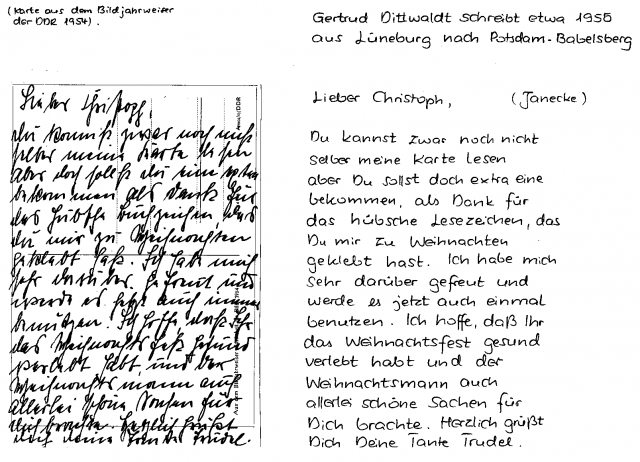 (Karte aus dem Bildjahrweiser
der DDR 1954).
Gertrud Dittwaldt schreibt etwa 1955
aus Lüneburg nach Potsdam-Babelsberg
Lieber Christoph
du kannst zwar noch nicht
selber meine Karte lesen
Aber doch sollst du eine extra
bekommen als Dank für
das hübsche Buchzeichen das
du mir zu Weihnachten
geklebt hast. Ich habe mich
sehr darüber gefreut und
werde es jetzt auch immer
benutzen. Ich hoffe daß Ihr
das Weihnachtsfest gesund
verlebt habt und der
Weihnachtsmann auch
allerlei schöne Sachen für
dich brachte. Herzlich grüßt
dich deine Tante Trudel.
Lieber Christoph, (Janecke)
Du kannst zwar noch nicht
selber meine Karte lesen
aber Du sollst doch extra eine
bekommen, als Dank für
das hübsche Lesezeichen, das
Du mir zu Weihnachten
geklebt hast. Ich habe mich
sehr darüber gefreut und
werde es jetzt auch einmal
benutzen. Ich hoffe, daß Ihr
das Weihnachtsfest gesund
verlebt habt und der
Weihnachtsmann auch
allerlei schöne Sachen für
Dich brachte. Herzlich grüßt
Dich Deine Tante Trudel.